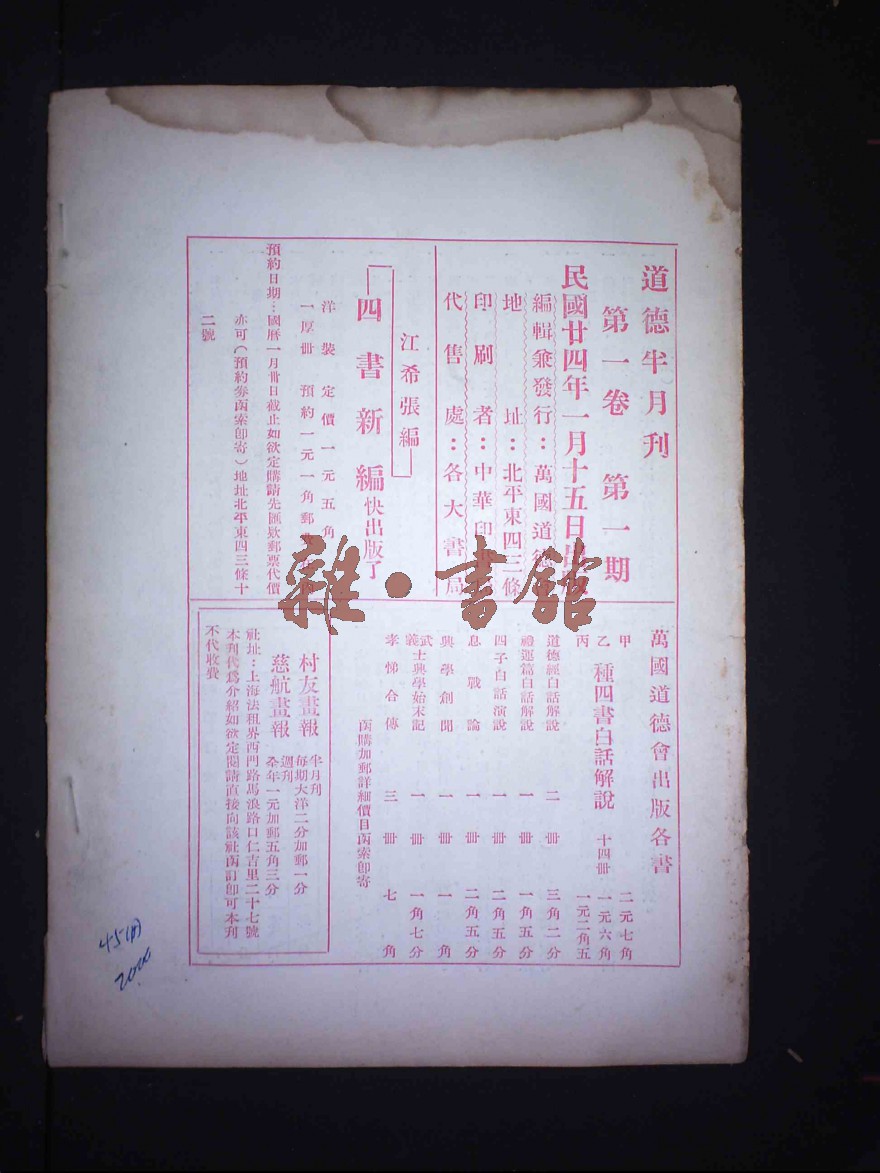 道德半月刊
第一卷　第一期
民國廿四年一月十五日出版
編輯兼發行：萬國道德
地址：北平東四三條
印刷者：中華印
代售處：各大書局
江希張編
四書新編快出版了
洋裝定價一元五角
一厚冊　預約一元一角郵
預約日期…國曆一月卅日截止如欲定購請先匯欵郵票代價
亦可（預約劵函索卽寄）地址北平東四三條十
二號
萬國道德會出版各書
甲　二元七角
乙　種四書白話解說　十四冊　一元六角
丙　一元二角五
道德經白話解說　二冊　三角二分
禮運篇白話解說　一冊　一角五分
四子白話演說　一冊　二角五分
息戰論　一冊　二角五分
興學創聞　一冊　一角
武士興學始末記　一冊　一角七分
義
孝悌合傳　三冊　七角
函購加郵詳細價目函索卽寄
村友畫報　半月刊　每期大洋二分加郵一分
慈航畫報　週刊　全年一元加郵五角三分
社址：上海法租界西門路馬浪路口仁吉里二十七號
本刊代爲介紹如欲定閱請直接向該社函訂卽可本刊
不代收費
雜·書館
45(#)
2000